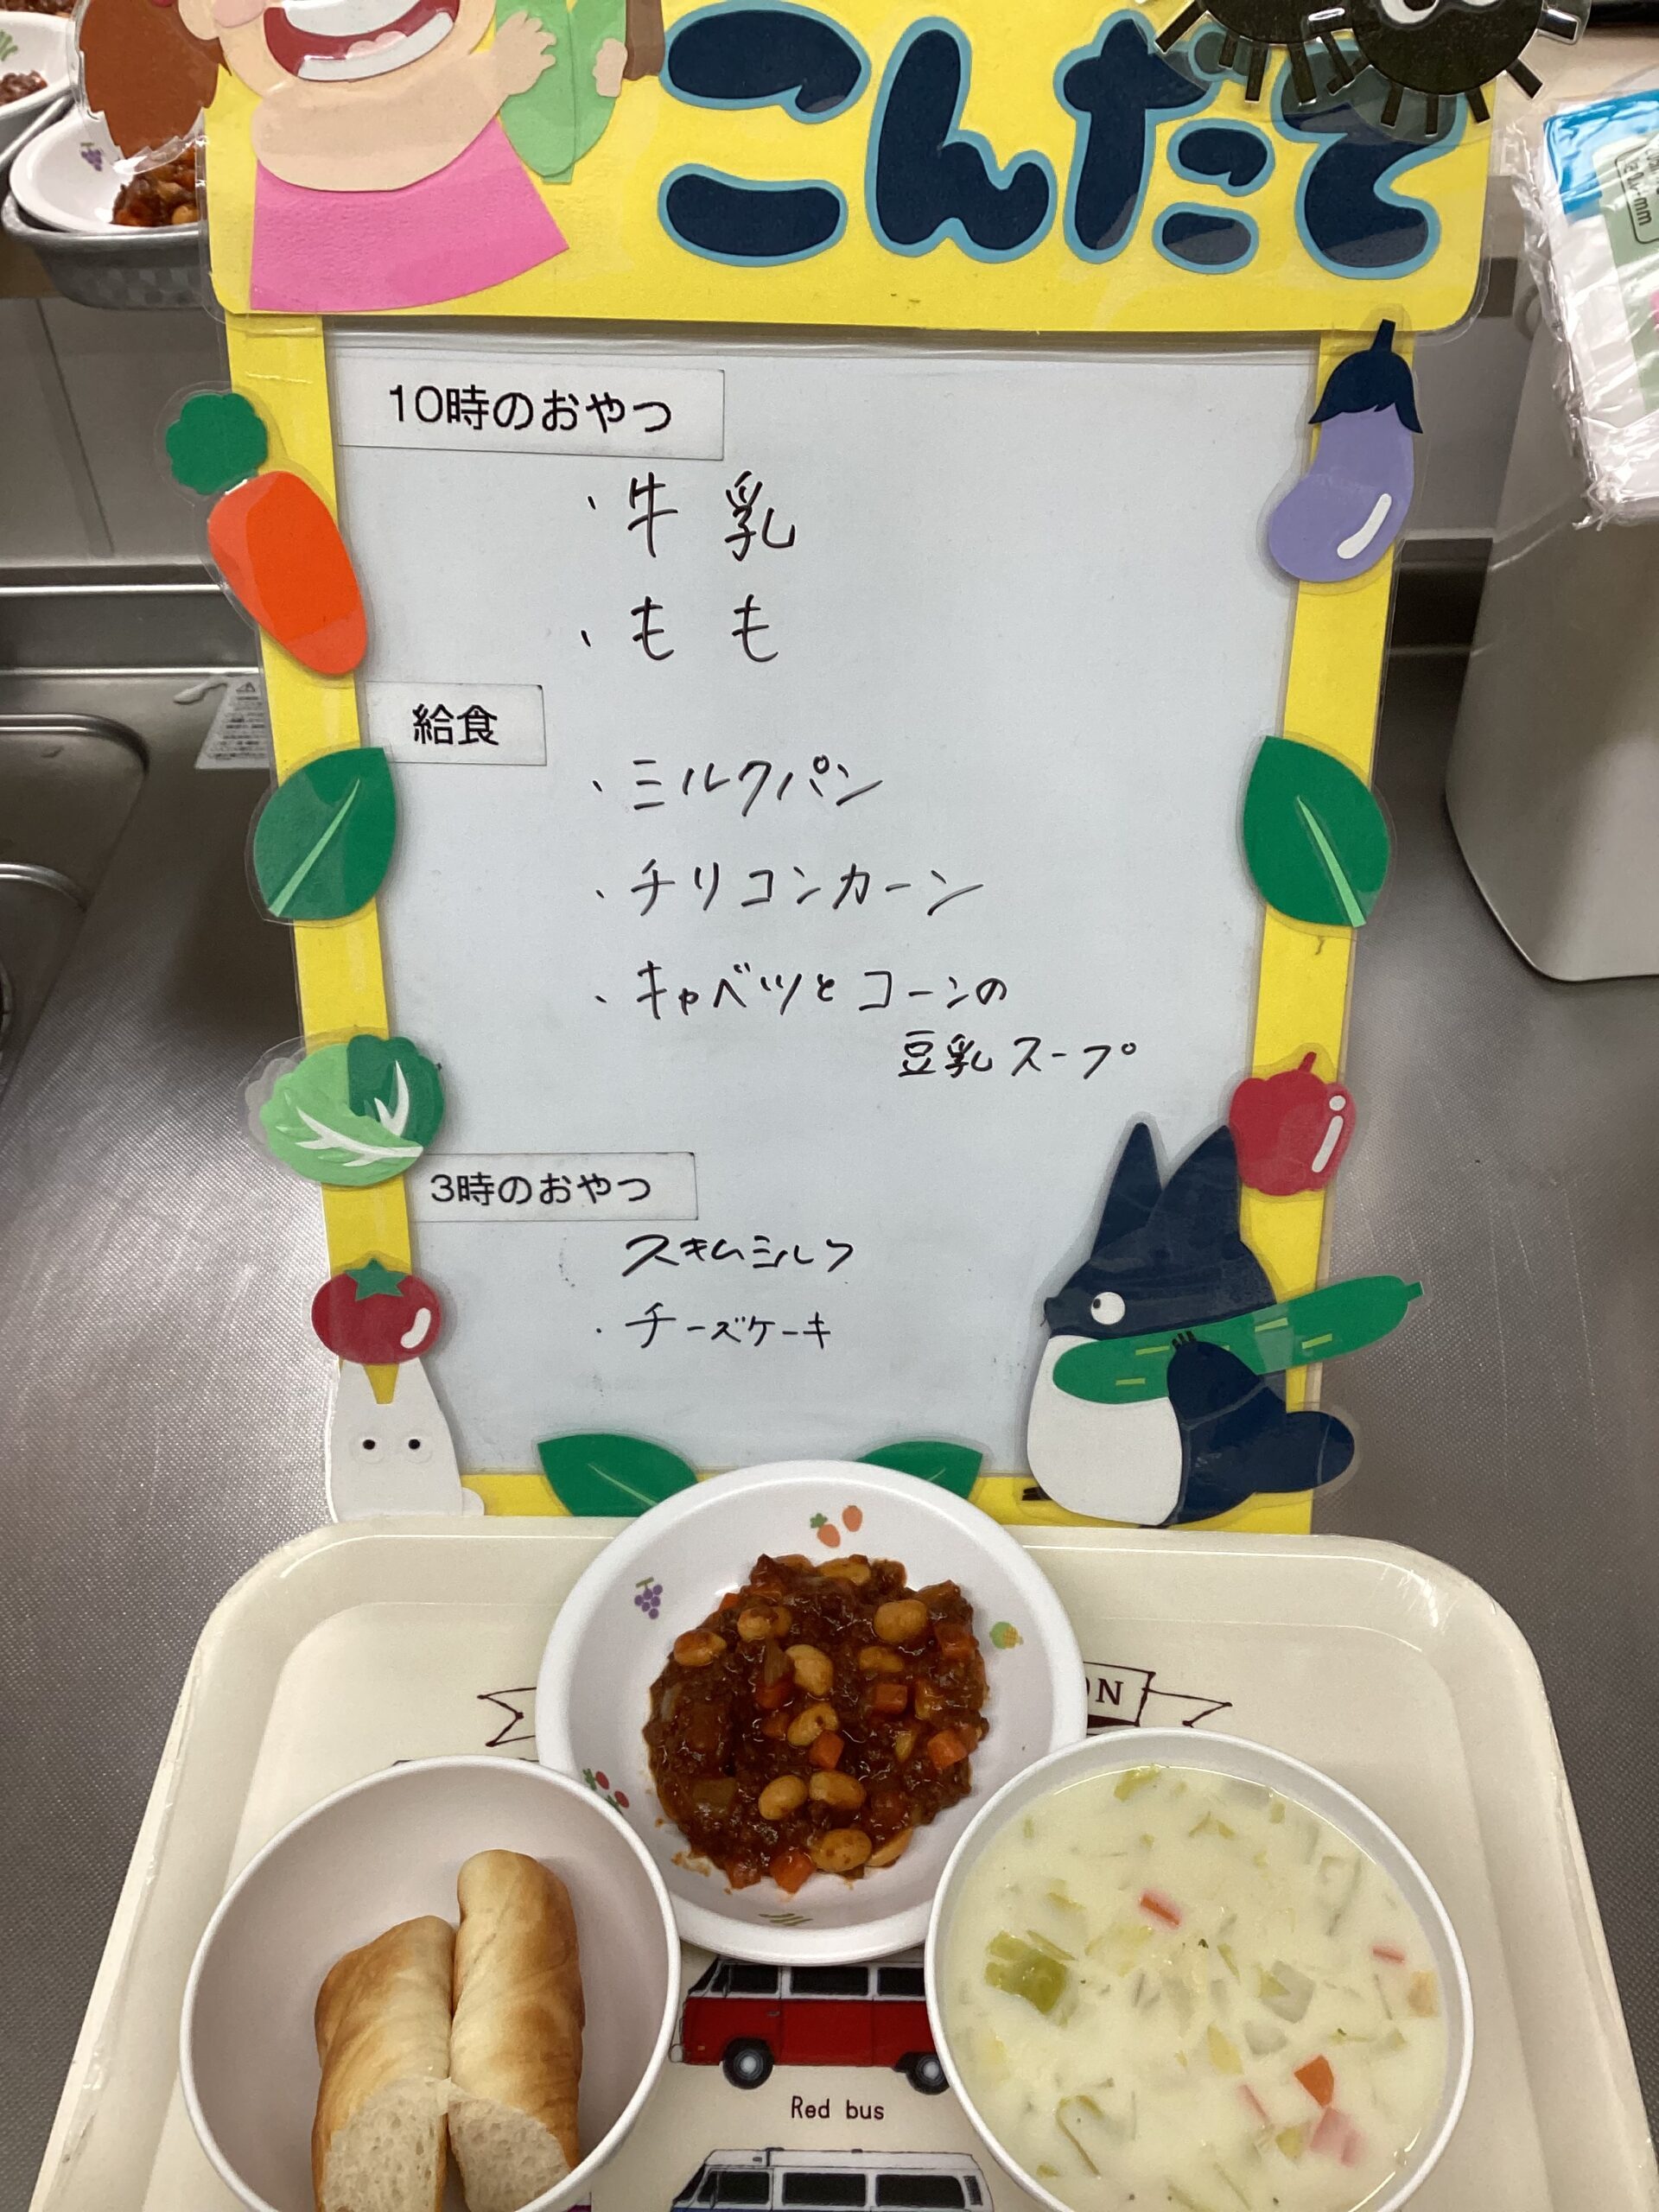 こんだて
10時のおやつ
・牛乳
・もも
給食
・ミルクパン
・チリコンカーン
・キャベツとコーンの
豆乳スープ
3時のおやつ
スキムミルク
・チーズケーキ
ON
Red bus